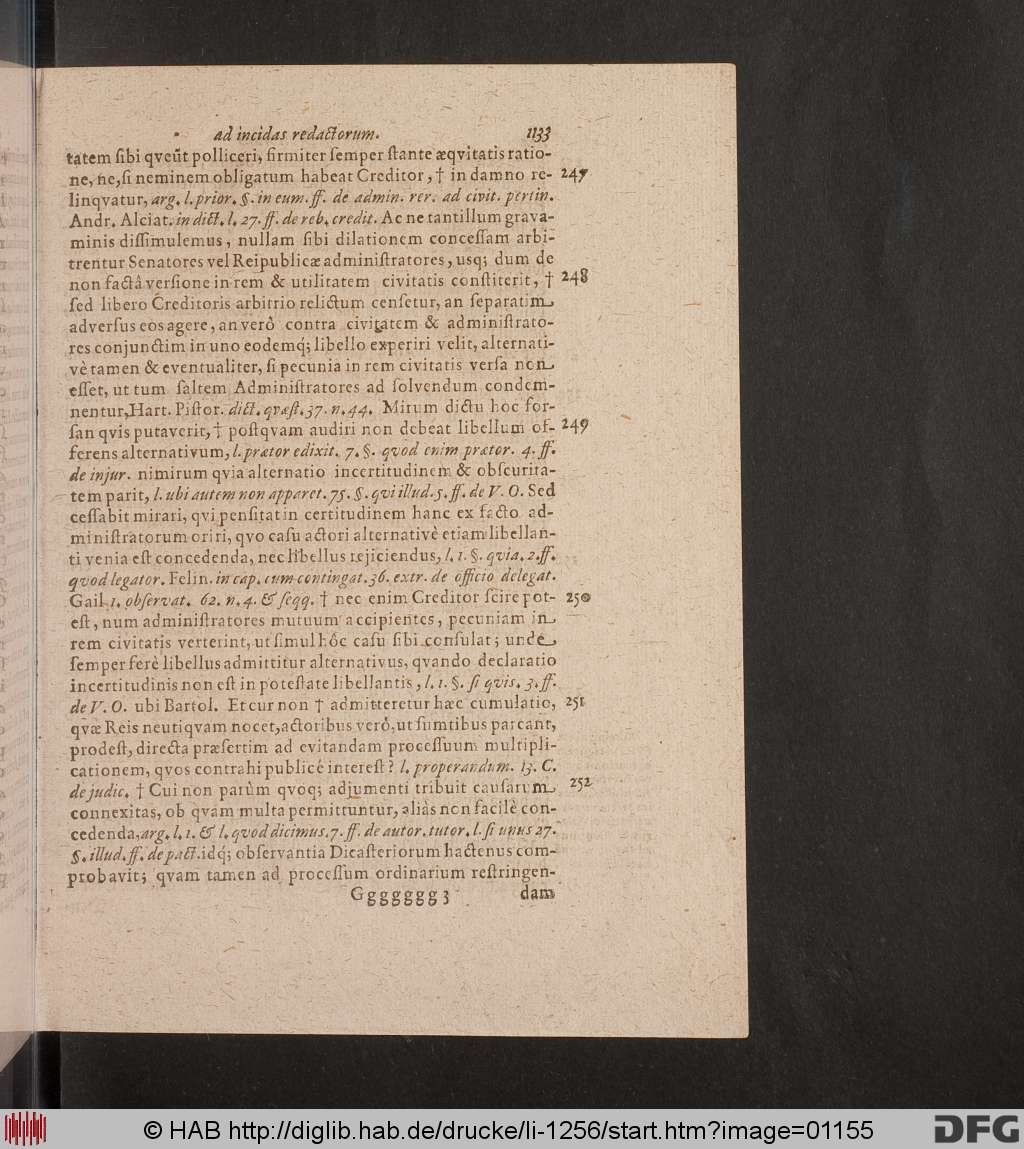 ad incidas redactorum. 1133
tatem sibi qveũt polliceri, firmiter semper stante æqvitatis ratio-
ne, ne, si neminem obligatum habeat Creditor, † in damno re- 247
linqvatur, arg. l. prior. §. in eum. ff. de admin. rer. ad civit. pertin.
Andr. Alciat. in dict. l. 27. ff. de reb. credit. Ac ne tantillum grava-
minis dissimulemus, nullam sibi dilationem concessam arbi-
trentur Senatores vel Reipublicæ administratores, usq; dum de
non factâ versione in rem & utilitatem civitatis constiterit, † 248
sed libero Creditoris arbitrio relictum censetur, an separatim
adversus eos agere, an verò contra civitatem & administrato-
res conjunctim in uno eodemq́; libello experiri velit, alternati-
vè tamen & eventualiter, si pecunia in rem civitatis versa non
esset, ut tum saltem Administratores ad solvendum condem-
nentur, Hart. Pistor. dict. qvæst. 37. n. 44. Mirum dictu hoc for-
san qvis putaverit, † postqvam audiri non debeat libellum of- 249
ferens alternativum, l. prætor edixit. 7. §. qvod enim prætor. 4. ff.
de injur. nimirum qvia alternatio incertitudinem & obscurita-
tem parit, l. ubi autem non apparet. 75. §. qvi illud. 5. ff. de V. O. Sed
cessabit mirari, qvi pensitat in certitudinem hanc ex facto ad-
ministratorum oriri, qvo casu actori alternativè etiam libellan-
ti venia est concedenda, nec libellus rejiciendus, l. 1. §. qvia. 2. ff.
qvod legator. Felin. in cap. cum contingat. 36. extr. de officio delegat.
Gail. 1. observat. 62. n. 4. & seqq. † nec enim Creditor scire pot- 250
est, num administratores mutuum accipientes, pecuniam in
rem civitatis verterint, ut simul hôc casu sibi consulat; unde
semper ferè libellus admittitur alternativus, qvando declaratio
incertitudinis non est in potestate libellantis, l. 1. §. si qvis. 3. ff.
de V. O. ubi Bartol. Et cur non † admitteretur hæc cumulatio, 251
qvæ Reis neutiqvam nocet, actoribus verò, ut sumtibus parcant,
prodest, directa præsertim ad evitandam processuum multipli-
cationem, qvos contrahi publicè interest? l. properandum. 13. C.
de judic. † Cui non parùm qvoq; adjumenti tribuit causarum 252
connexitas, ob qvam multa permittuntur, aliàs non facilè con-
cedenda, arg. l. 1. & l. qvod dicimus. 7. ff. de autor. tutor. l. si unus 27.
§. illud. ff. de pact. idq́; observantia Dicasteriorum hactenus com-
probavit; qvam tamen ad processum ordinarium restringen-
Ggggggg 3 dam
© HAB http://diglib.hab.de/drucke/li-1256/start.htm?image=01155 DFG